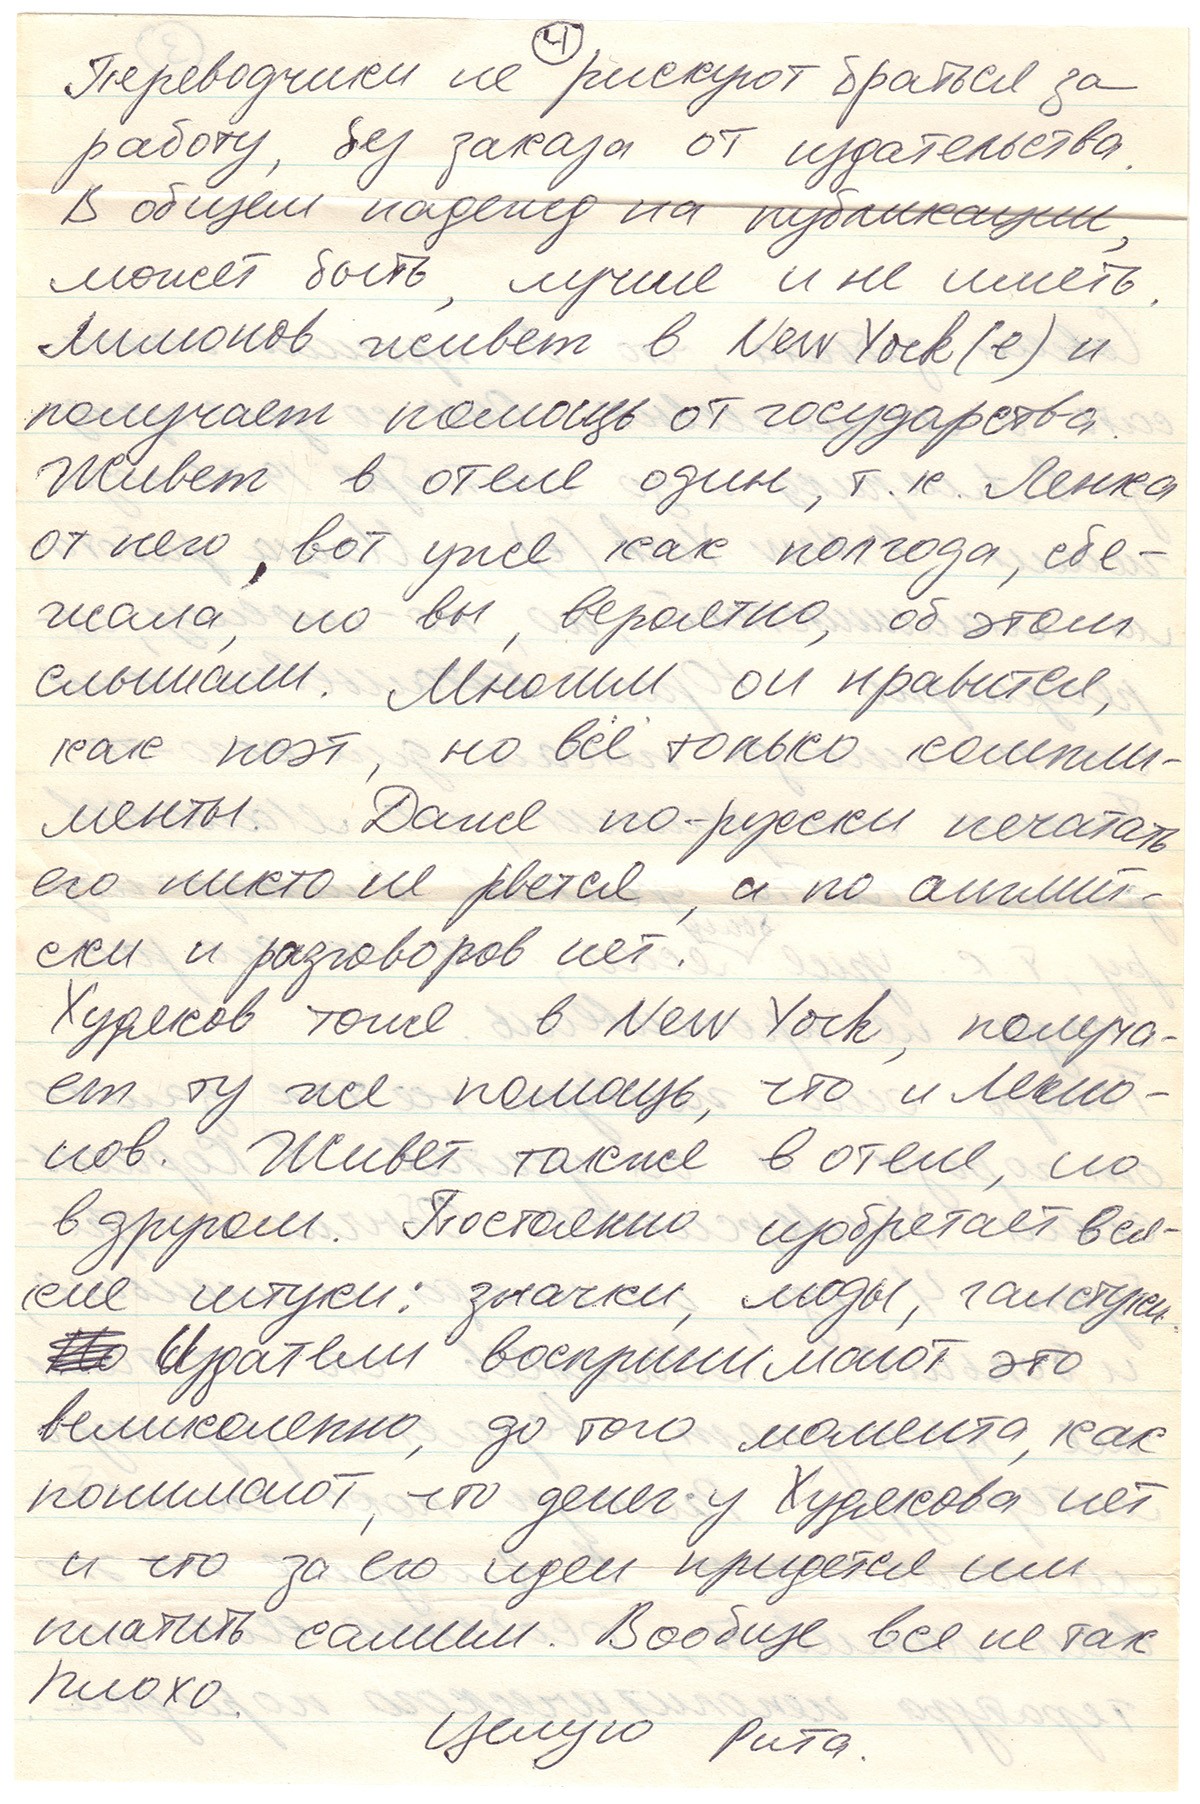 4
Переводчики не рискуют браться за
работу, без заказа от издательства.
В общем надежд на публикации,
может быть, лучше и не иметь.
Лимонов живет в New York(е) и
получает помощь от государства.
Живет в отеле один, т.к. Ленка
от него, вот уже как полгода, сбе-
жала, но вы, вероятно, об этом
слышали. Многим он нравится,
как поэт, но всё только компли-
менты. Даже по-русски печатать
его никто не рвется, а по англий-
ски и разговоров нет.
Худяков тоже в New York, получа-
ет ту же помощь, что и Лимо-
нов. Живет также в отеле, но
в другом. Постоянно изобретает вся-
кие штуки: значки, моды, галстуки.
Издатели воспринимают это
великолепно, до того момента, как
понимают, что денег у Худякова нет
и что за его идеи придется им
платить самим. Вообще все не так
плохо.
Целую Рита.